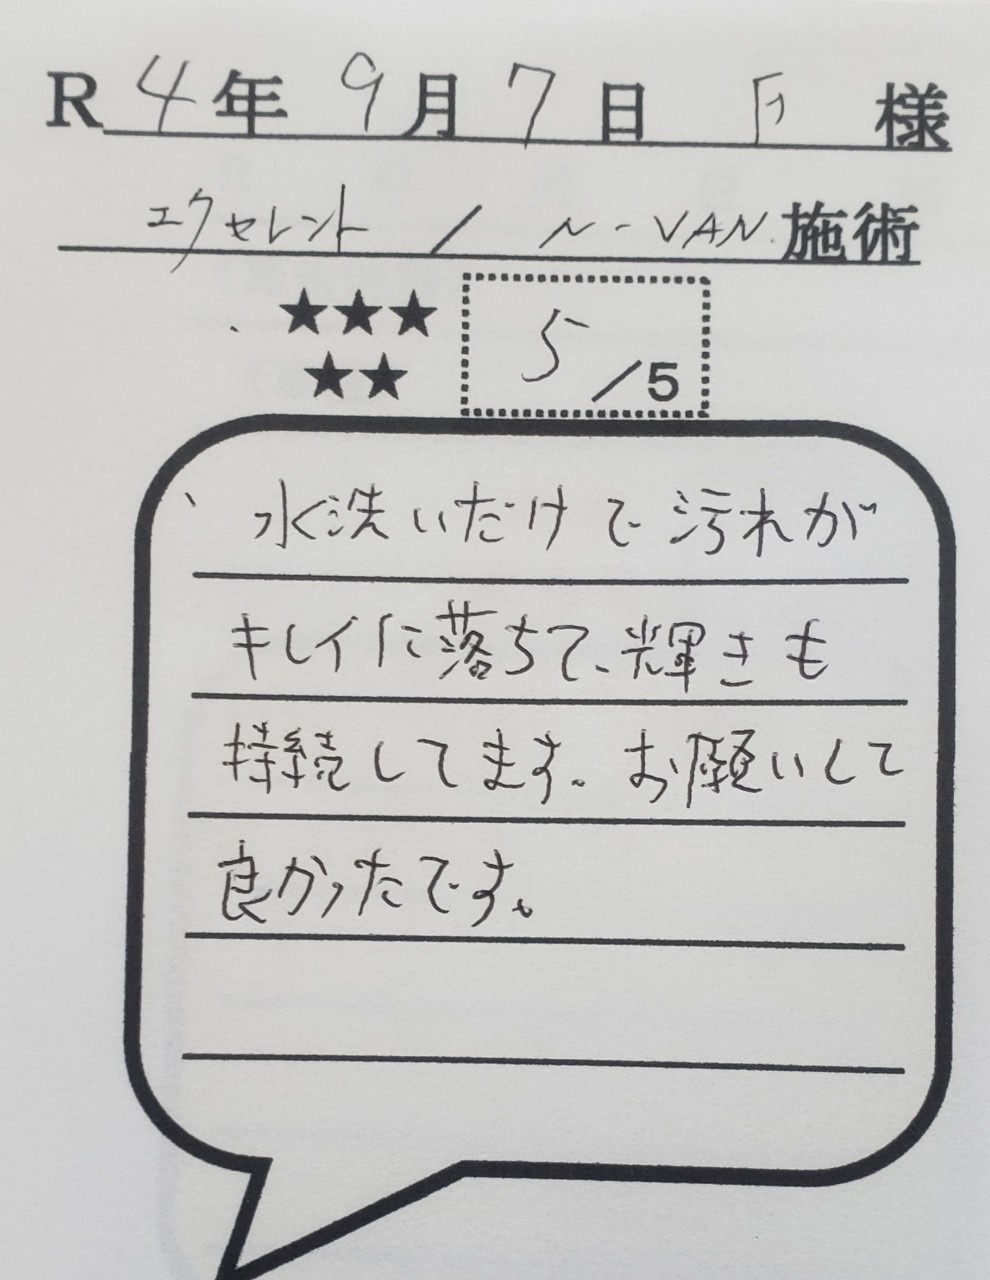 R 4年 9月 7日 F 様
エクセレント / N-VAN 施術
★★★
★★
5/5
水洗いだけで汚れが
キレイに落ちて、輝きも
持続してます。お願いして
良かったです。